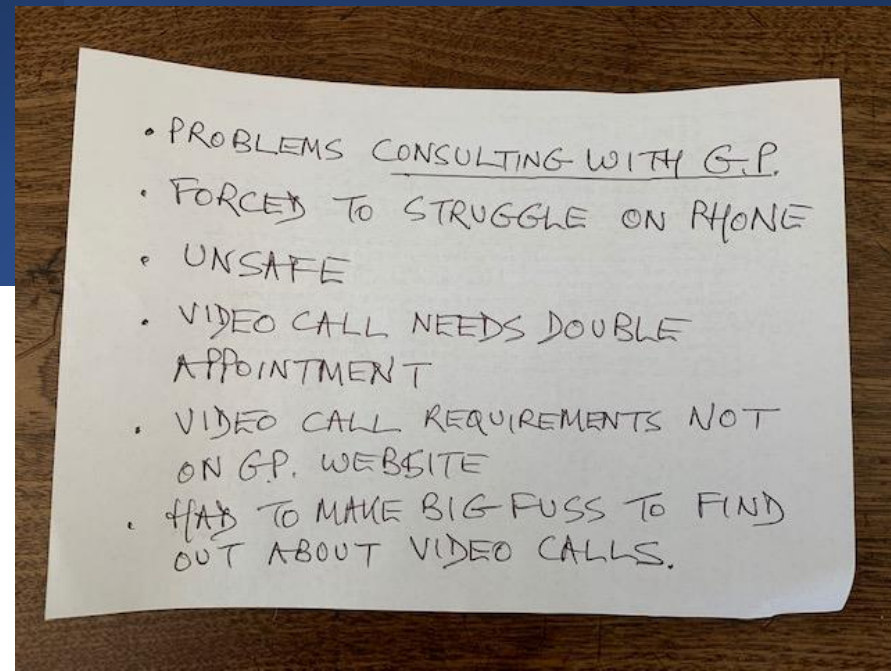 • PROBLEMS CONSULTING WITH G.P.
• FORCED TO STRUGGLE ON PHONE
• UNSAFE
• VIDEO CALL NEEDS DOUBLE
APPOINTMENT
• VIDEO CALL REQUIREMENTS NOT
ON G.P. WEBSITE
• HAD TO MAKE BIG FUSS TO FIND
OUT ABOUT VIDEO CALLS.